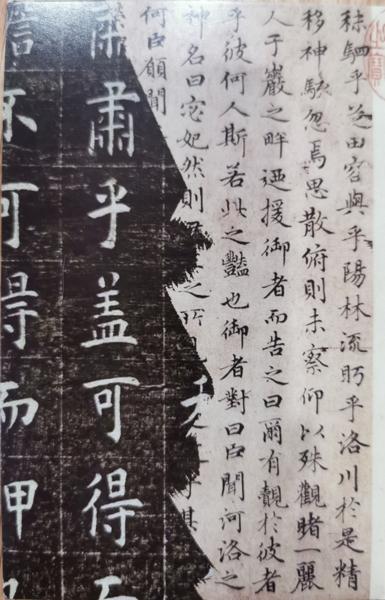 秣駟乎芝田容與乎陽林流眄乎洛川於是精
移神駭忽焉思散俯則未察仰以殊觀睹一麗
人于巖之畔迺援御者而告之曰爾有覿於彼者
乎彼何人斯若此之豔也御者對曰臣聞河洛之
神名曰宓妃然則
之所見
何臣願聞
肅乎盖可得
不可得而